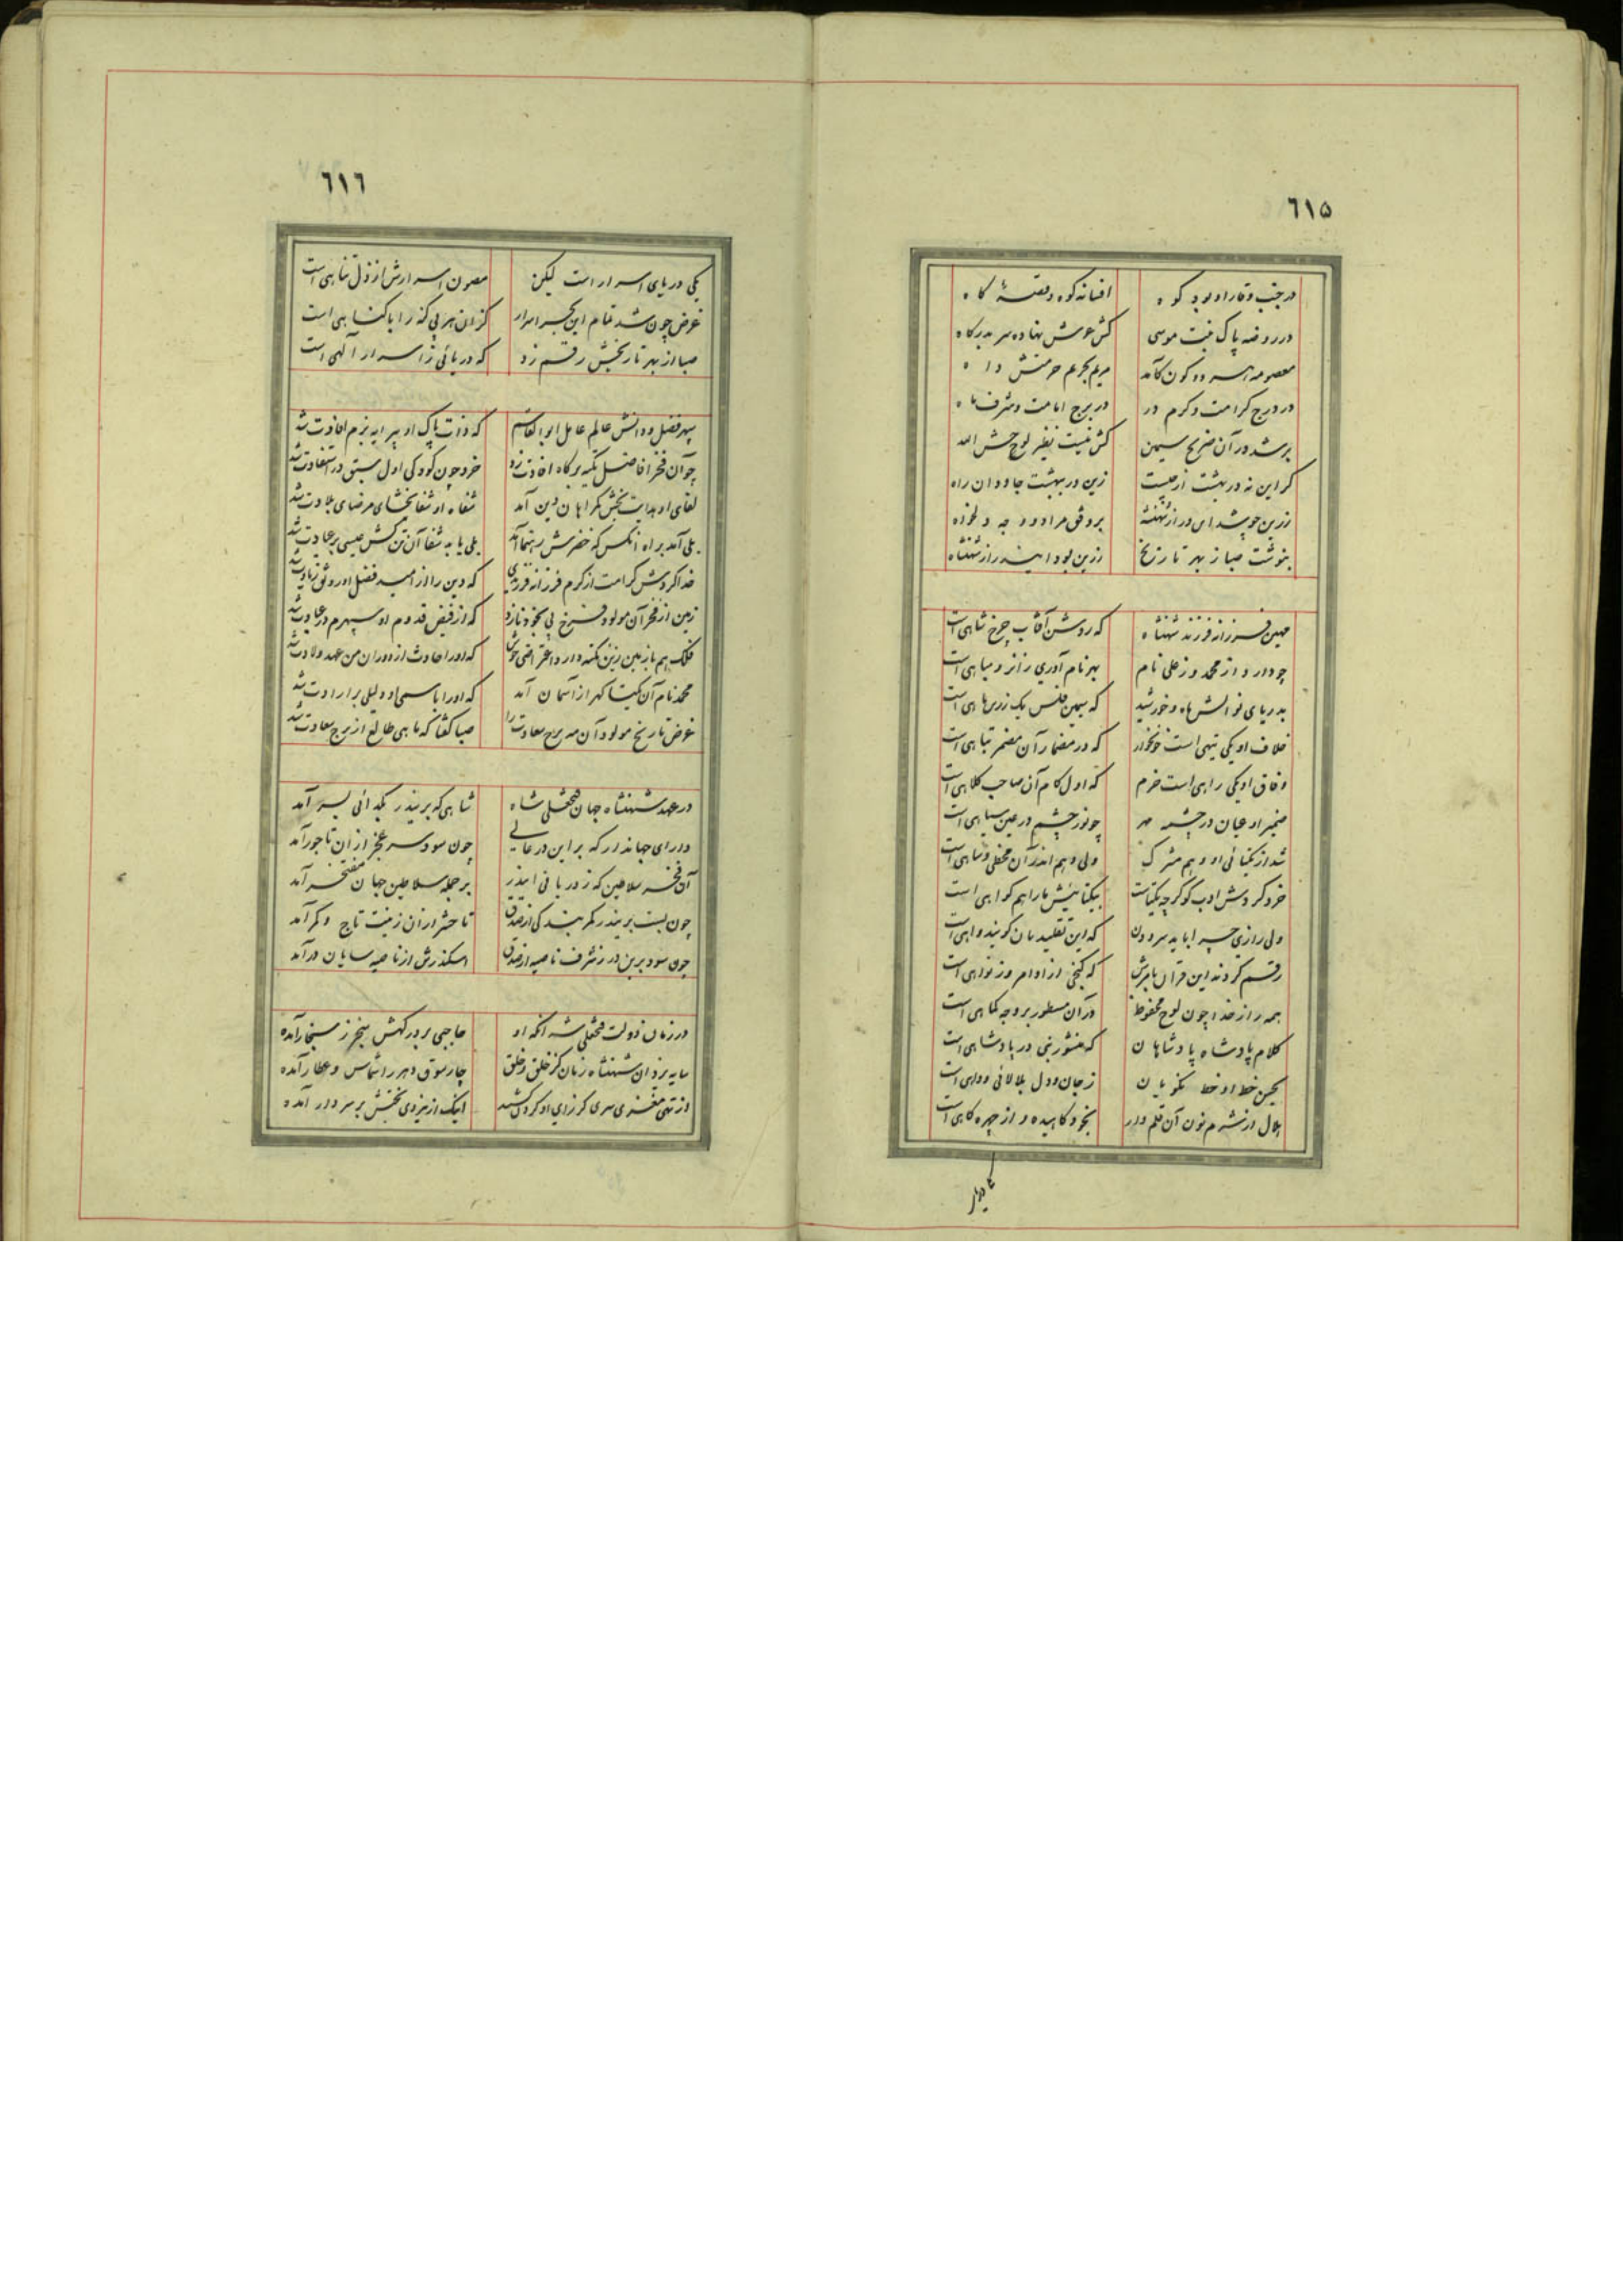 ٦١۵
در جنب وقار او بود کوه افسانه کوه و قصهٔ کاه
در روضه پاک بنت موسی کش عرش نهاده سر بدرگاه
معصومه که سرو کون کآمد مریم بحریم حرمتش داه
در درج کرامت و کرم در در برج امامت و شرف ماه
بر شد در آن ضریح سیمین کش نیست نظیر لوحش الله
گر این نه در بهشت از چیست زین در بهشت جاودان راه
زرین چو شد این در از شهنشه بر وفق مراد و وجه دلخواه
بنوشت صبا ز بهر تاریخ زرین بود این در از شهنشاه
مهین فرزانه فرزند شهنشاه که روشن آفتاب چرخ شاهی است
چو دارد از محمد وز علی نام بهر نام آوری زانرو مباهی است
بدریای نوالش ماه و خورشید که سیمین فلس یک زرین ماهی است
خلاف او یکی تیهی است خونخوار که در مضمار آن مضمر تباهی است
وفاق او یکی راهی است خرم که اول گام آن صاحب کلاهی است
ضمیر او عیان در چشمه مهر چو نور چشم در عین سیاهی است
شد از یکتائی او وهم مشرک ولی وهم اندر آن مخطی و ساهی است
خرد کردش ادب کو گرچه یکتاست بیکتائیش ما را هم گواهی است
ولی رازی چرا باید سرودن که این تقلید مان گویند واهی است
رقم کردند این قرآن بامرش که گنجی از اوامر وز نواهی است
همه راز خدا چون لوح محفوظ در آن مسطور بر وجه کماهی است
کلام پادشاه پادشاهان که منشور نبی در پادشاهی است
بحسن خط او خط نکویان ز جان و دل بلالائی و داهی است
هلال از شرم نون آن قلم وار بخود کاهیده و از چهره کاهی است
٦١٦
یکی دریای اسرار است لیکن مصون اسرارش از ذل تناهی است
غرض چون شد تمام این بحر اسرار کزان هر بی گنه را با گناهی است
صبا از بهر تاریخش رقم زد که دریائی ز اسرار آلهی است
سپهر فضل و دانش عالم عامل ابوالقاسم که ذات پاک او پیرایه بزم افادت شد
چو آن فخر افاضل تکیه بر گاه افادت زد خرد چون کودکی اول سبق در استفادت شد
لقای او هدایت بخش گمراهان دین آمد شفاه او شفا بخشای مرضای بلادت شد
بلی آمد براه آنکس که خضرش رهنما آمد بلی یابد شفا آن تن کش عیسی بر عیادت شد
خدا کردش کرامت از کرم فرزانه فرزندی که دین را از امید فضل او رونق زیادت شد
زمین از فخر آن مولود فرخ پی بخود نازد که از فیض قدوم او سپهرم در عیادت شد
فلک هم با زمین زین نکته دارد اعتراضی خوش که او را حادث از دوران من عهد ولادت شد
محمد نام آن یکتا گهر از آسمان آمد که او را با سمی او دلیلی بر ارادت شد
غرض تاریخ مولود آن مه برج سعادت را صبا گفتا که ماهی طالع از برج سعادت شد
در عهد شهنشاه جهان فتحعلی شاه شاهی که برین در بگدائی بسر آمد
دارای جهاندار که بر این در عالی چون سود سر عجز ازان تاجور آمد
آن فخر سلاطین که ز دربانی این در بر جمله سلاطین جهان مفتخر آمد
چون بست برین در کمر بندگی از صدق تا حشر ازان زینت تاج و کمر آمد
چون سود برین در ز شرف ناصیه از صدق اسکندرش از ناصیه سایان در آمد
در زمان دولت فتحعلی شه آنکه او حاجبی بر درگهش سنجر ز سنجار آمده
سایه یزدان شهنشاه زمان کز خلق و خلق چارسوق دهر را شماس و عطار آمده
از تهی مغزی سری کز رای او گردن کشید اینک از نیزوی بختش بر سر دار آمده